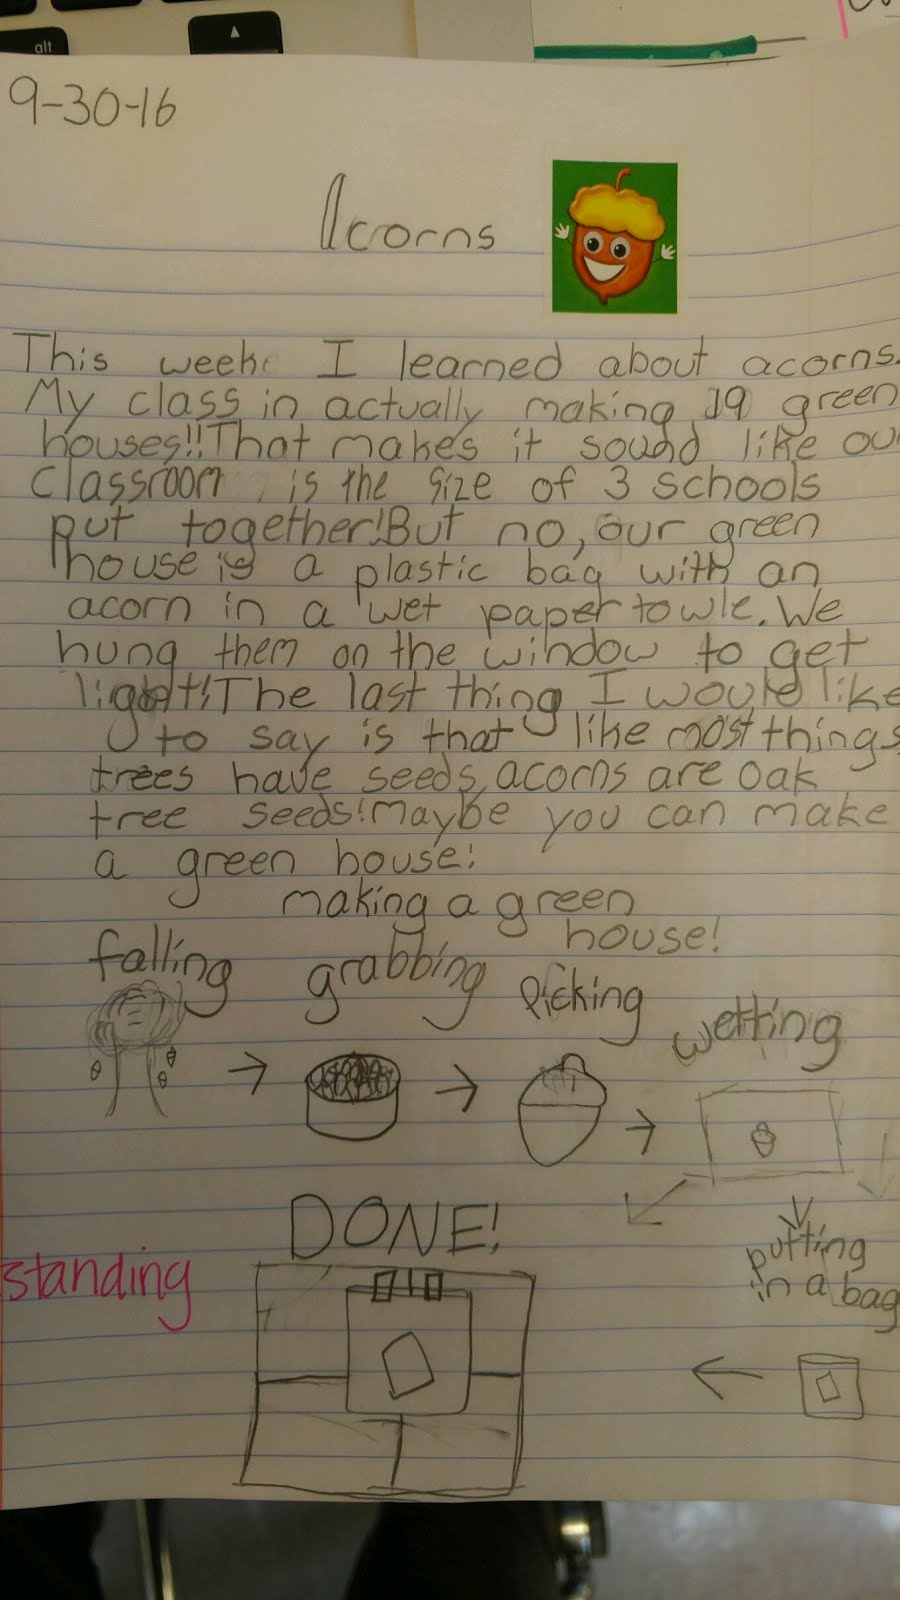 alt
9-30-16
Acorns
This week I learned about acorns.
My class in actually making 19 green
houses!! That makes it sound like our
classroom is the size of 3 schools
put together! But no, our green
house is a plastic bag with an
acorn in a wet paper towle. We
hung them on the window to get
light!! The last thing I would like
to say is that like most things
trees have seeds, acorns are oak
tree seeds! maybe you can make
a green house!
making a green
house!
falling
grabbing
picking
wetting
putting
in a bag
DONE!
standing